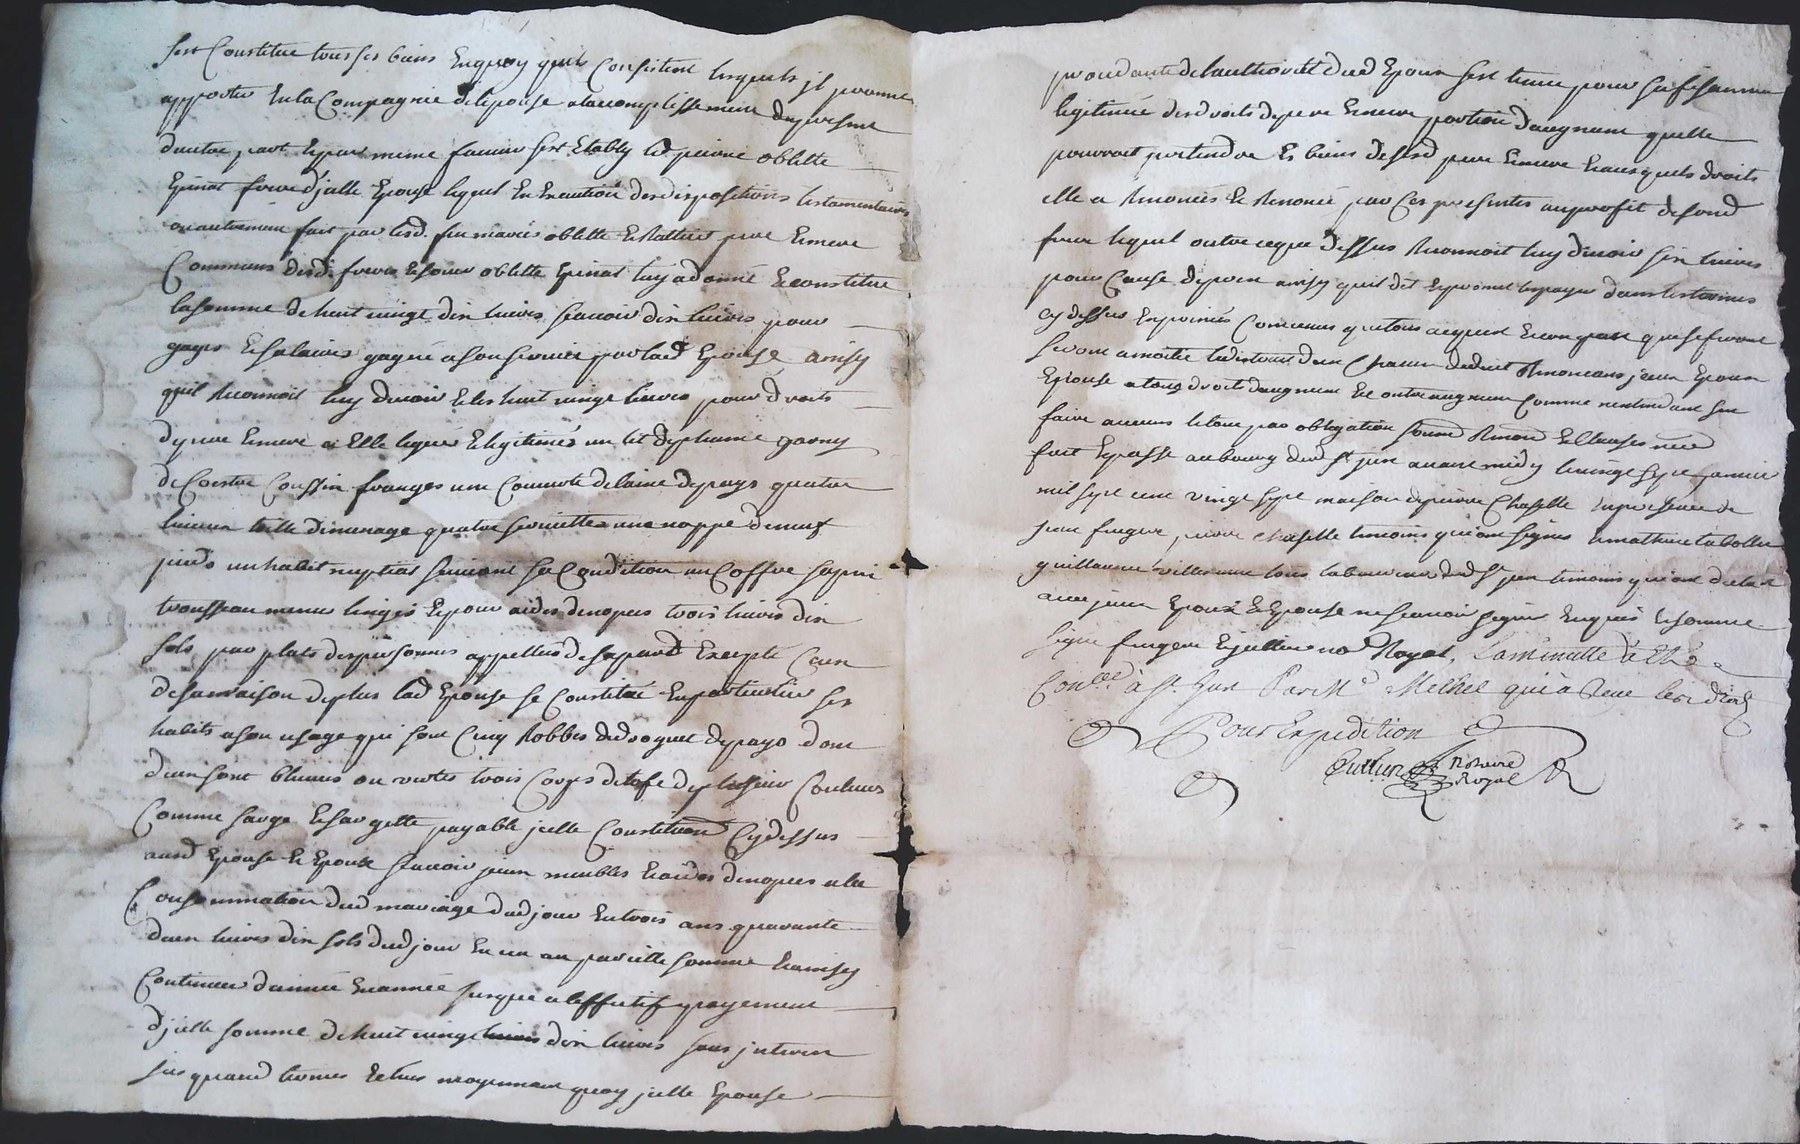 sest Constitué tous ses biens En quoy quils Consistent lesquels jl promet
apporter En la Compagnie de lepouse a laccomplissement du present
dautre part Et par meme faveur sest Etably led pierre oblette
Epinat frere d'jelle Epouse lequel En Execution des dispositions testamentaires
ou autrement fait par lesd. feu mariés oblette Et pere Et mere
Communs desd. freres Et soeur oblette Epinat luy a donné Et constitué
la somme de huit vingt dix livres scavoir dix livres pour
gages Et salaires gagné a son service par lad Epouse ainsy
quil Reconnoit luy devoir Et les huit vingt livres pour droits
de pere Et mere a Elle legués Et legitimés un lit de plume garny
de Coestre Coussin franges une Couverte de laine de pays quatre
linceux toille de menage quatre serviettes une nappe de neuf
pieds un habit nuptial suivant sa Condition un Coffre sapin
trousseau menu linges Et pour aides de nopces trois livres dix
sols par plats des personnes appellées de sa part Excepté Ceux
de sa maison de plus lad Epouse se Constitue En particulier ses
habits a son usage qui sont Cinq Robbes de droguet de pays dont
deux sont bleuues ou vertes trois Corps detofe de plusieurs Couleurs
Comme sarge Et sargette payable jcelle Constitution Cy dessus
ausd Epouse Et Epoux scavoir jceux meubles Et aides de nopces a la
Consommation dud mariage dud jour En trois ans quarante
deux livres dix sols dud jour En un an pareille somme Et ainsy
Continuer dannée En année jusques a leffectif payement
djcelle somme de huit vingt dix livres sans jnterest
si quand termes Echus moyennant quoy jcelle Epouse
procedante de lauthorité dud Epoux sest tenue pour satisfaite
legitimée des droits de pere Et mere portion daugment quelle
pourroit pretendre Es biens de sesd pere Et mere Et ausquels droits
elle a Renoncés Et Renonce par Ces presentes au profit de sond
frere lequel outre ce que dessus Reconnoit luy devoir six livres
pour Cause de prest ainsy quil dit Et promet les payer dans les termes
cy dessus Exprimés Convenus que tous acquest Et conquest que se feront
seront a moitié Renoncans jceux Epoux
Epouse a tous droits daugment Et contre augment Comme nentendant sen
faire aucuns Et tout par obligation soumd Renond Et Clauses necd
fait Et passé au bourg dud st just avant midy le vingt sept janvier
mil sept cent vingt sept maison de pierre Chapelle En presence de
jean fingere pierre Chapelle temoins qui ont signés Et mathieu tabollet
guillaume villenneuve tous laboureurs dud st just temoins qui ont declaré
avec jceux Epoux Et Epouse ne scavoir signer Enquis Et sommé
signé fingere Et jullien nor Royal, La minutte à Eté
Conlée à St. Just Par Mr Melhet qui à Receu les droits
Pour Expedition
Jullien Notaire
Royal